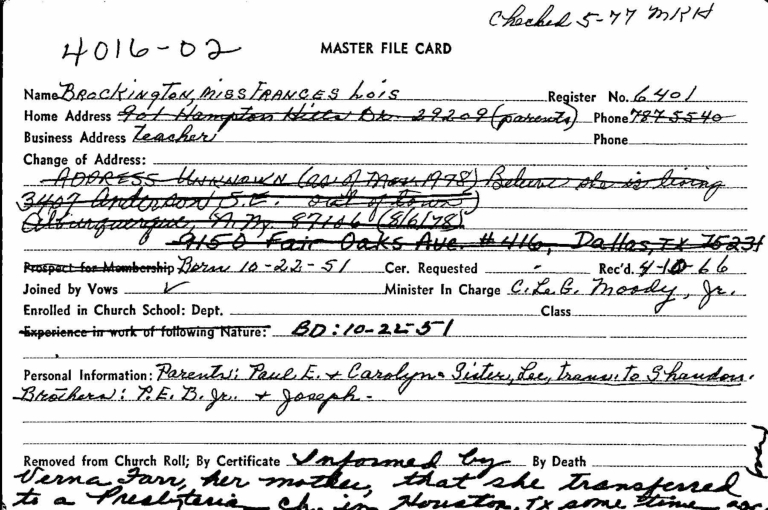 Checked 5-77 MKH
4016-02
MASTER FILE CARD
Name Brockington, Miss Frances Lois Register No. 6401
Home Address 901 Hampton Hills Dr. 29209 (parents) Phone 787-5540
Business Address teacher Phone
Change of Address:
ADDRESS Unknown (as of Mar. 1978) Believe she is living
3407 Anderson S.E. out of town)
Alburquerque, N.M. 87106 (8/6/78)
9150 Fair Oaks Ave. #416, Dallas, TX 75231
Prospect for Membership Born 10-22-51 Cer. Requested - Rec'd. 4-10-66
Joined by Vows ✓ Minister In Charge C. Le G. Moody, Jr.
Enrolled in Church School: Dept. Class
Experience in work of following Nature: BD: 10-22-51
Personal Information: Parents: Paul E. + Carolyn - Sister, Lee, trans. to Shandon.
Brothers: P. E. B. Jr. + Joseph -
Removed from Church Roll; By Certificate Informed by By Death
Verna Farr, her mother, that she transferred
to a Presbyteria ch. in Houston, TX some time ago